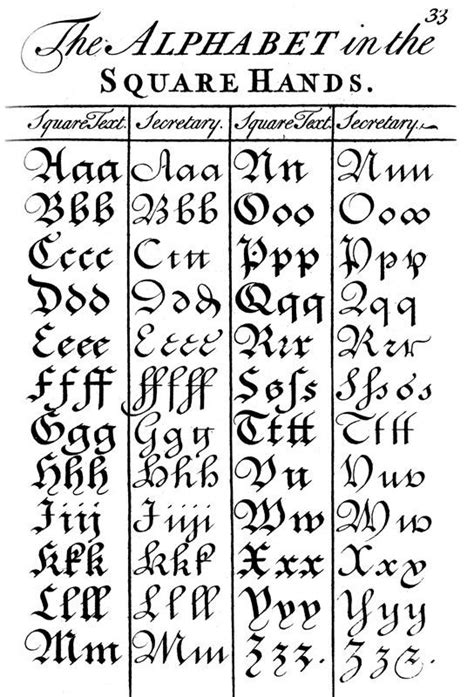 33
The ALPHABET in the
SQUARE HANDS.
Square Text. Secretary. Square Text Secretary.
Aaa Aaa Nn Nnn
Bbb Bbb Ooo Ooo
Cccc Cccc Pppp Ppp
Ddd Dddd Qqq Qqq
Eeee Eeeee Rrr Rrr
Ffff ffffff Ssſs Sſsss
Ggg Ggg Tttt Tttt
Hhh Hhh Vu Vuv
Iiij Iiiji Ww Ww
Kkk Kkk Xxx Xxx
Llll Llll Yyy Yyy
Mm Mm Zzz. Zzz.